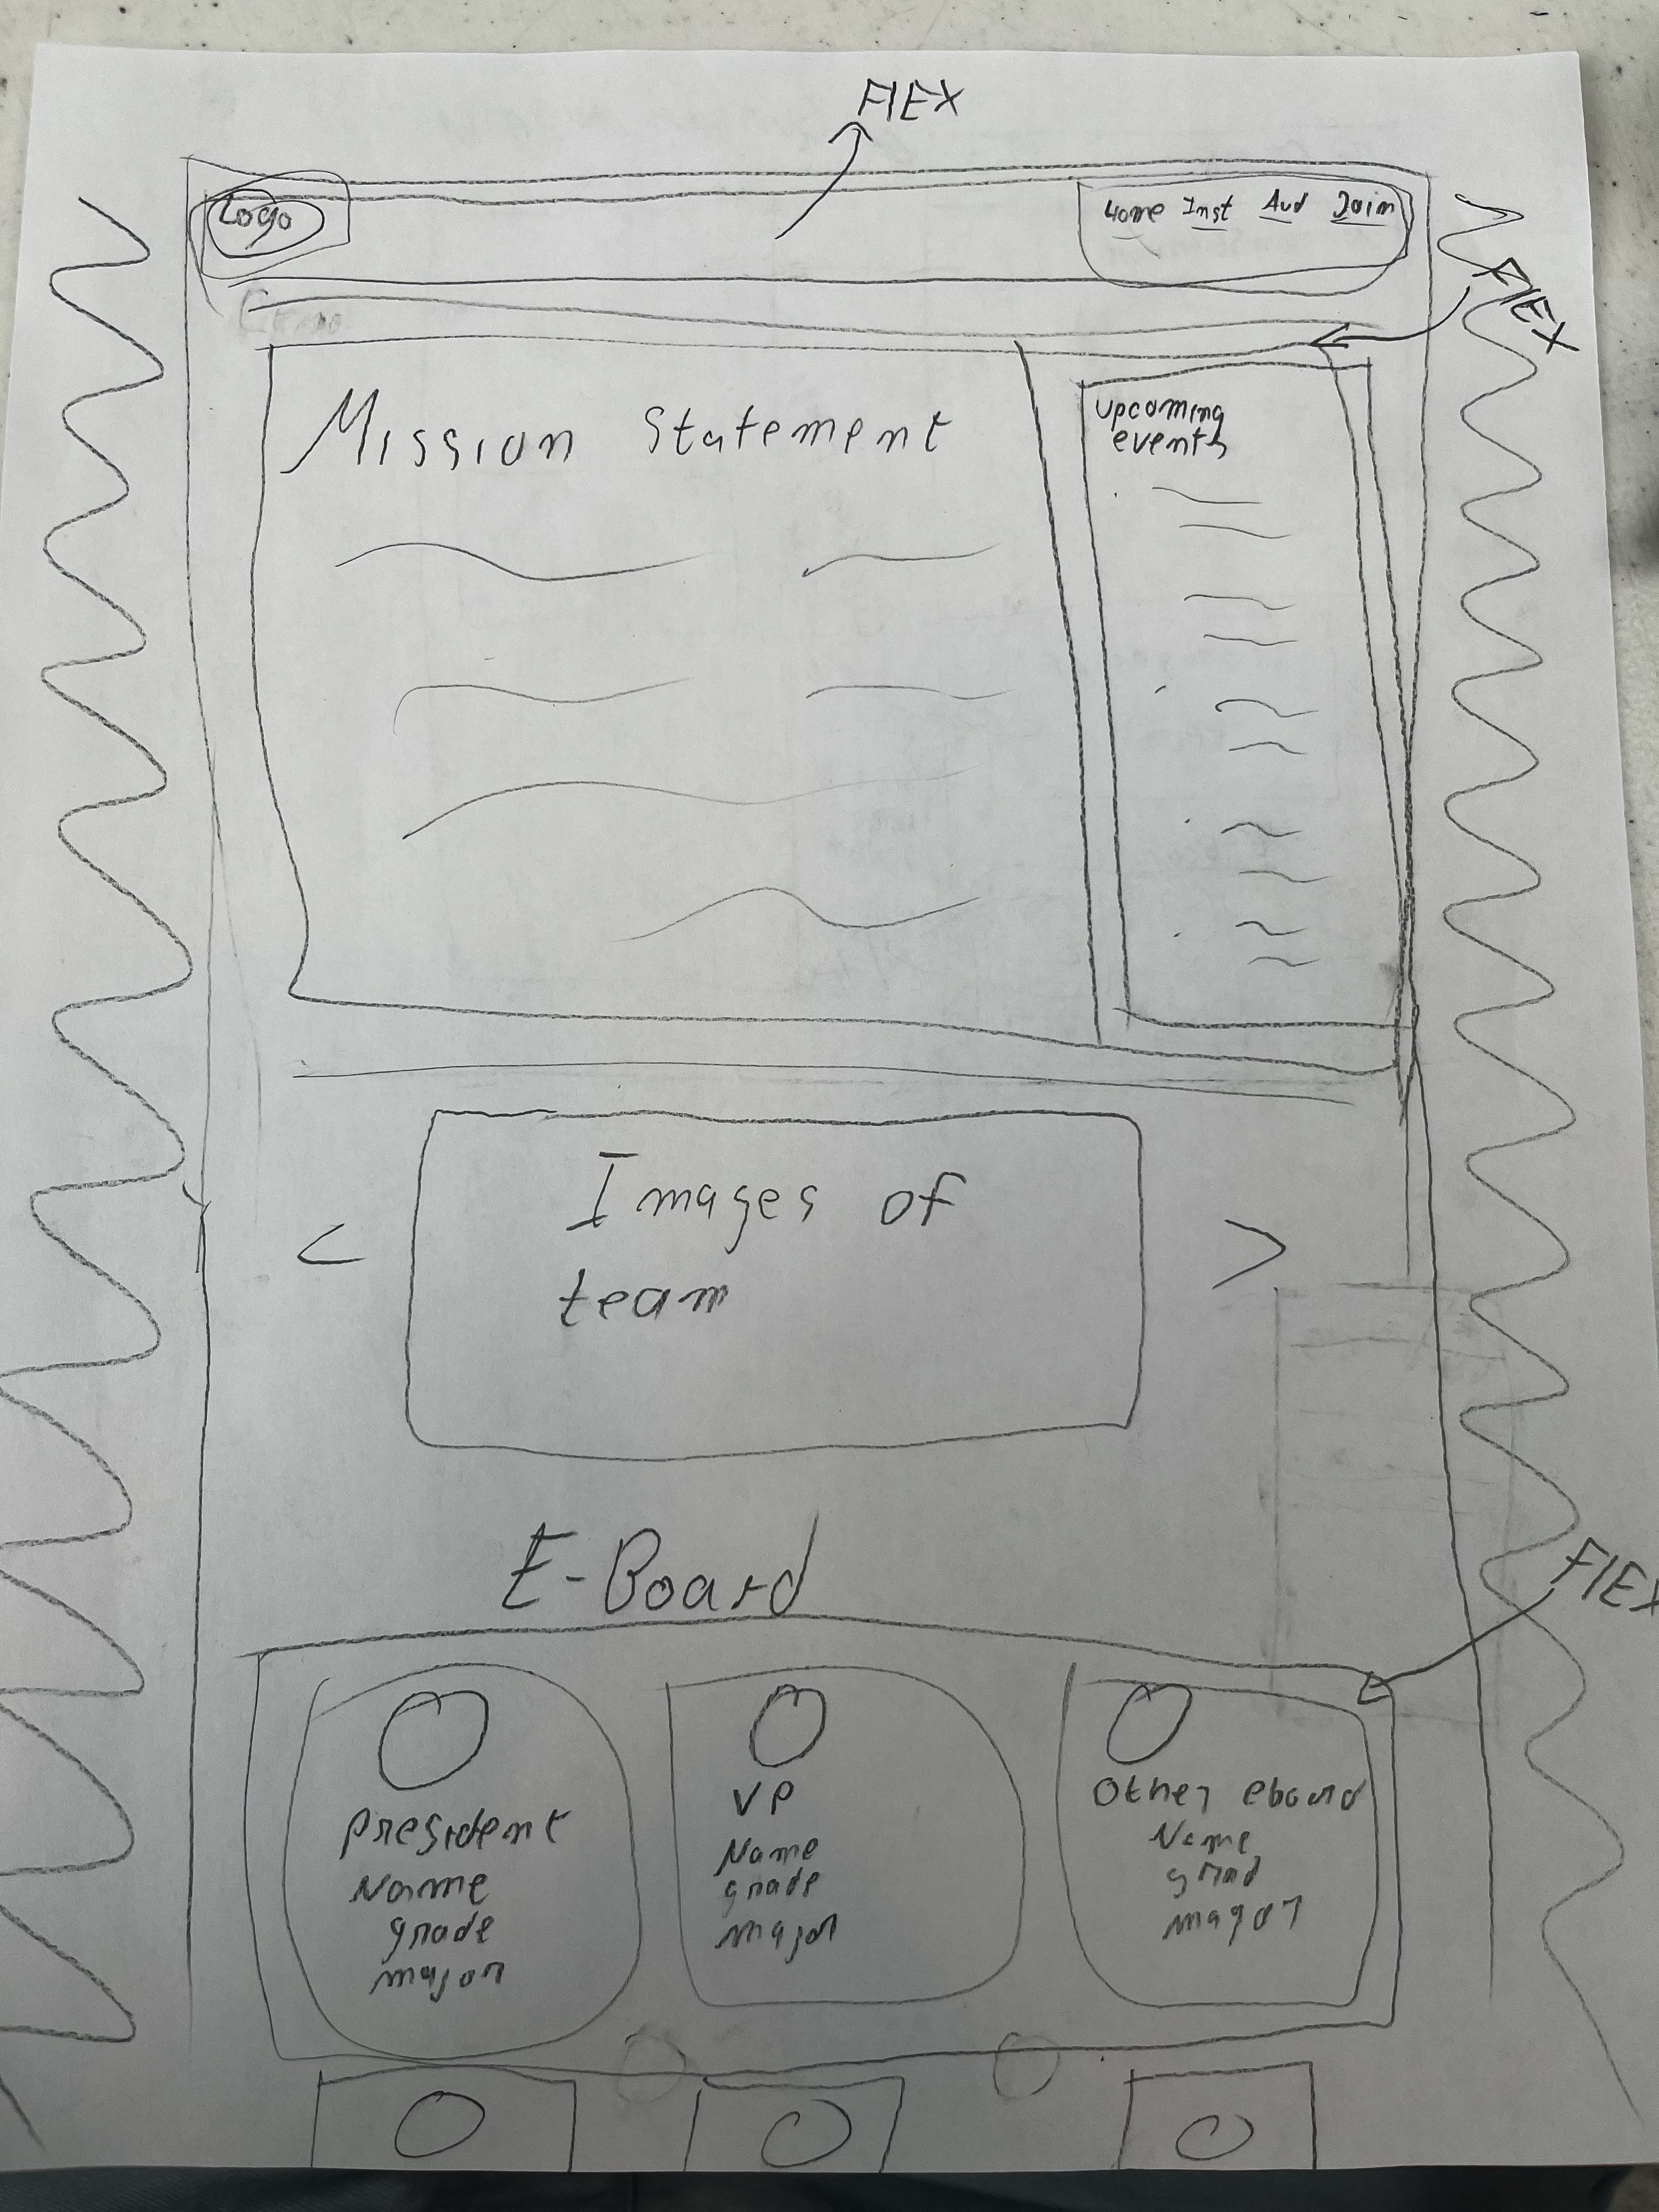 FlEX
Logo
Home Inst Aud Join
FlEX
Mission Statement
upcoming
events
<
Images of
team
>
E-Board
FlEX
president
Name
grade
major
VP
Name
grade
major
Other eboard
Name
grad
magor